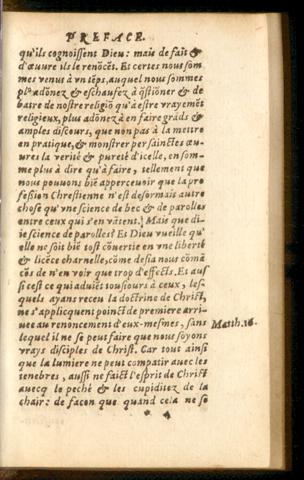 PREFACE.
qu'ils cognoissent Dieu: mais de faict &
d'œuure ils le renoncēt. Et certes nous som
mes venus à vn tēps, auquel nous sommes
plº adōnez & eschaufez à q̃stiōner & de
batre de nostre religiō qu'à estre vrayemēt
religieux, plus adōnez à en faire grāds &
amples discours, que non pas à la mettre
en pratique, & monstrer par sainctes œu
ures la verité & pureté d'icelle, en som-
me plus à dire qu'à faire, tellement que
nous pouuons biē apperceuoir que la pro
fession Chrestienne n'est desormais autre
chose qu'vne science de bec & de parolles
entre ceux qui s'en vātent. Mais que di-
ie science de parolles? Et Dieu vueille qu'
elle ne soit biē tost cōuertie en vne liberté
& licēce charnelle, cōme desia nous cōmā
cōs de n'en voir que trop d'effects. Et auſ
ſi c'est ce qui aduiēt tousiours à ceux, leſ-
quels ayans receu la doctrine de Christ,
ne s'appliquent poinct de premiere arri-
uee au renoncement d'eux-mesmes, sans
lequel il ne se peut faire que nous soyons
vrays disciples de Christ. Car tout ainsi
que la lumiere ne peut compatir auec les
tenebres, aussi ne faict l'esprit de Christ
auecq le peché & les cupiditez de la
chair: de façon que quand cela ne se
Matth. 16.
* 4